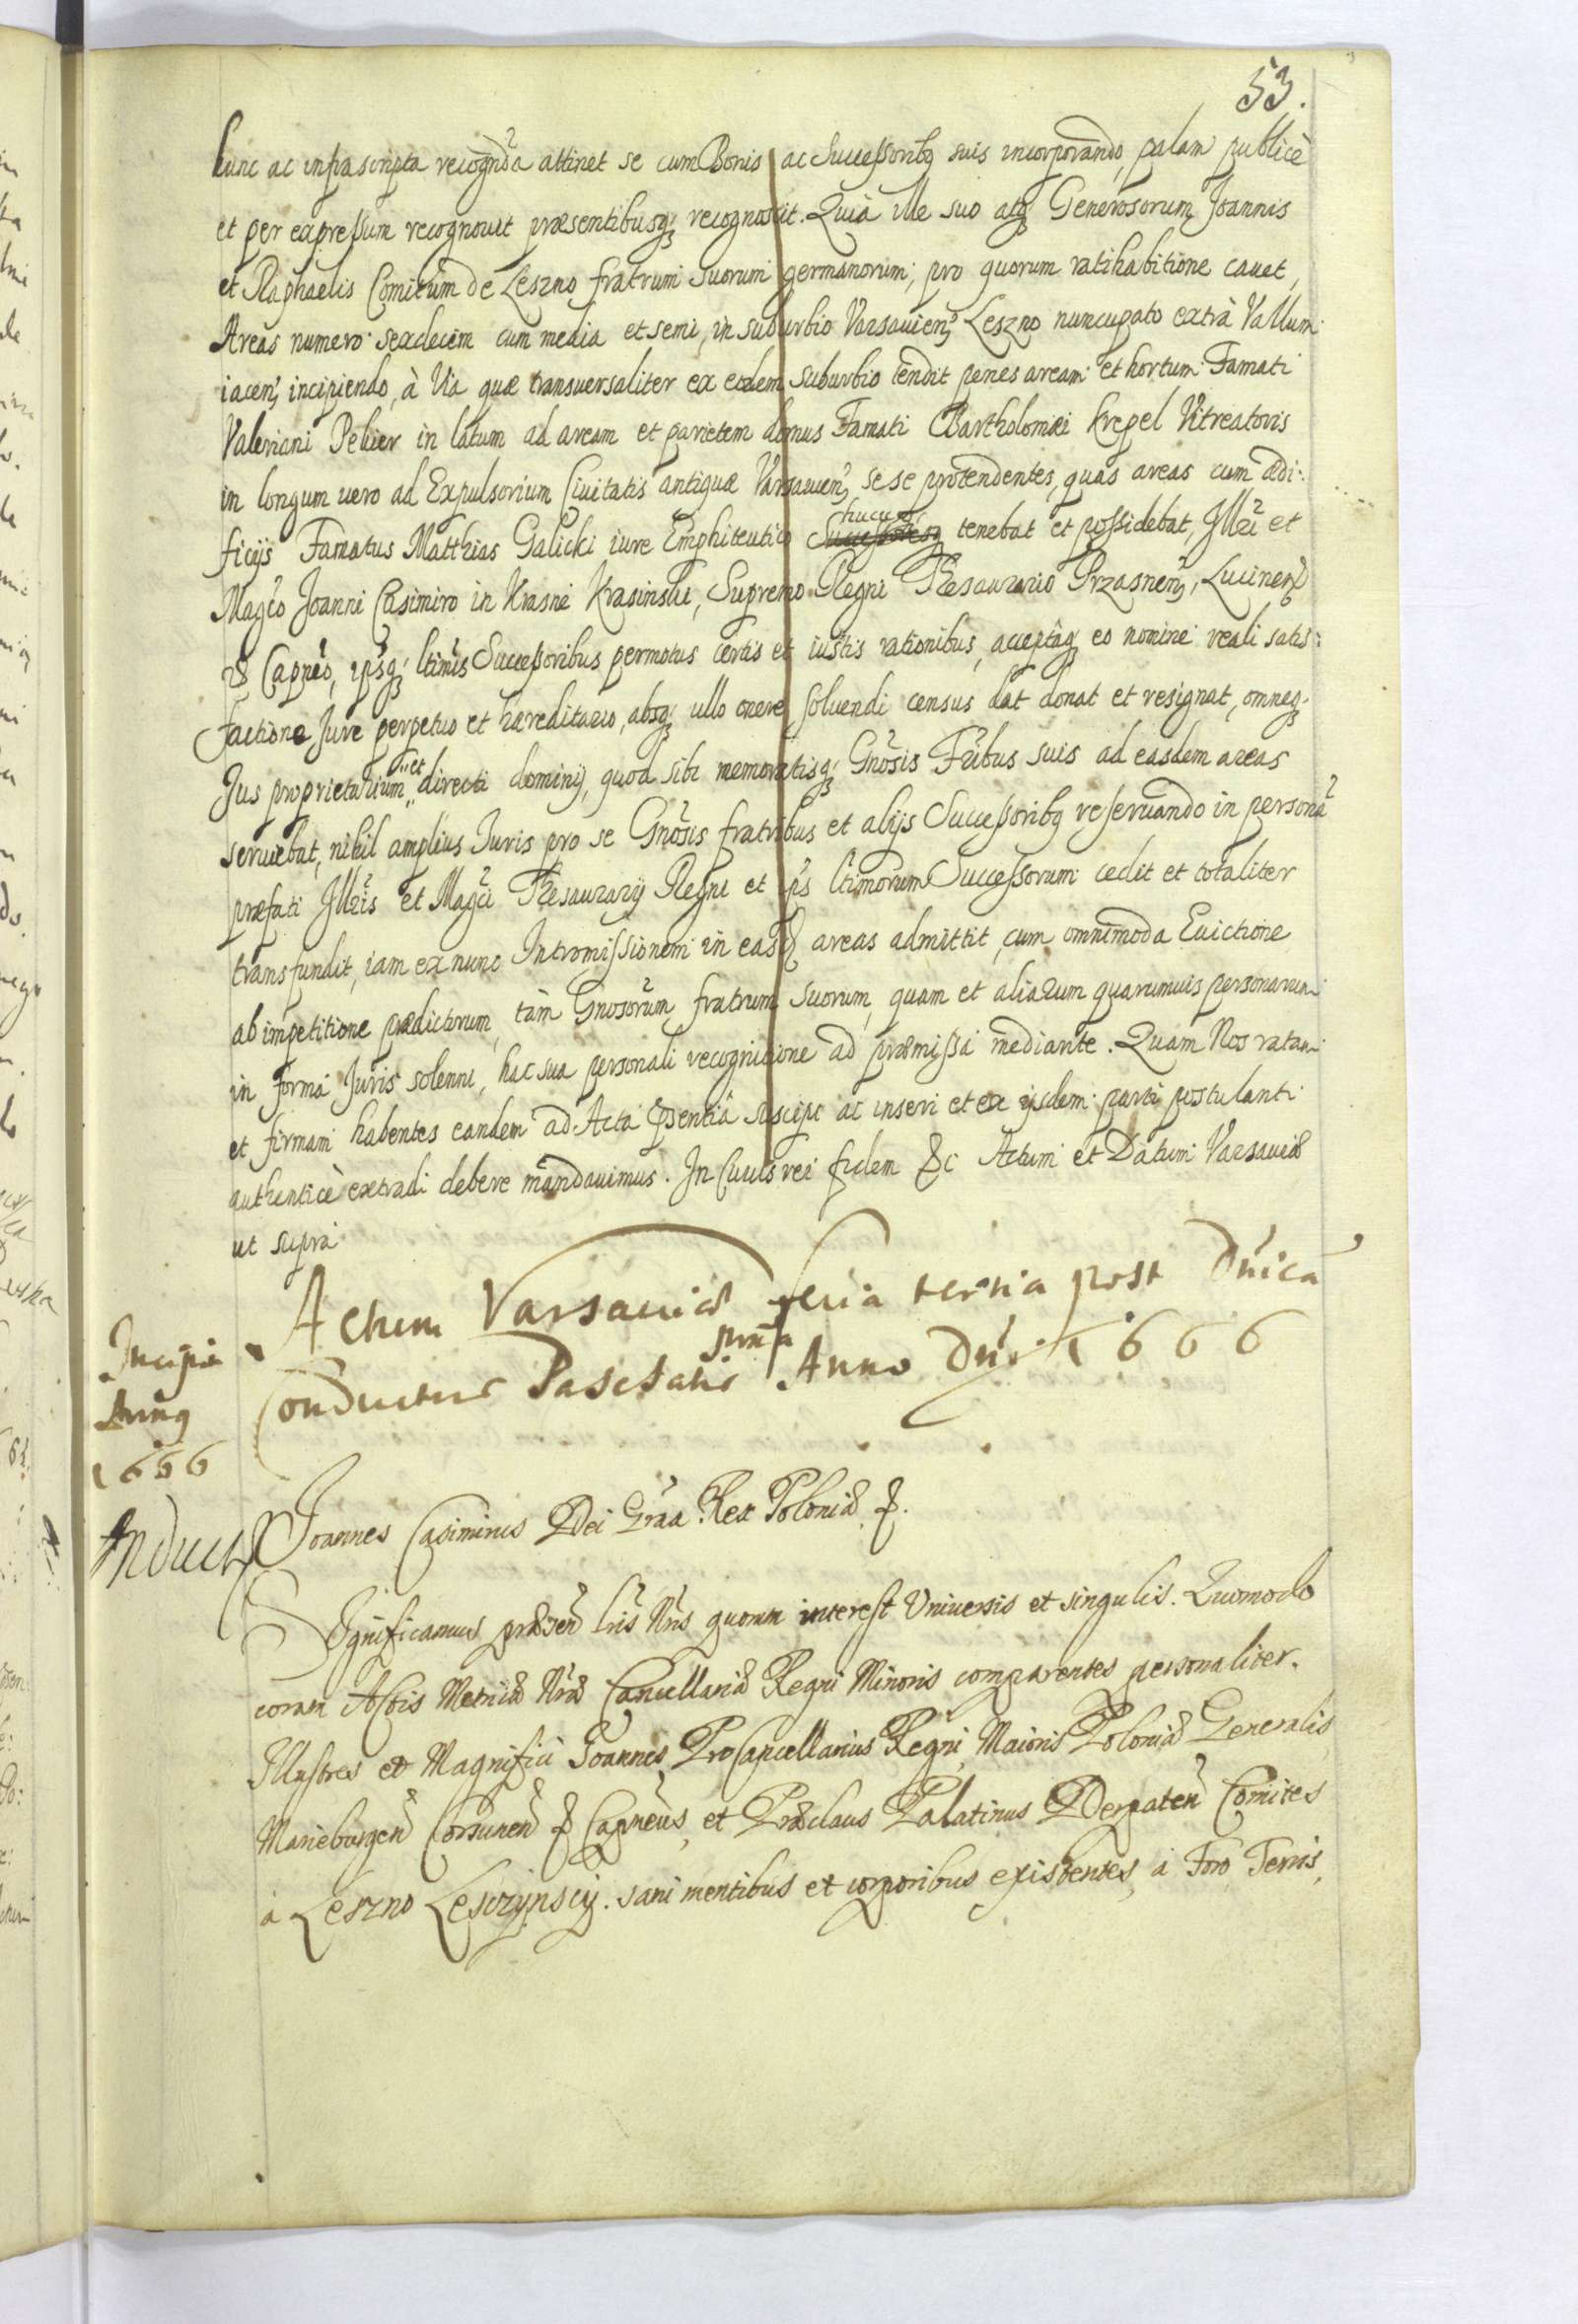 53.
hunc ac infrascripta recognða attinet se cum Bonis ac Successoribq suis incorporando, palam publicè
et per expressum recognouit præsentibusq; recognoscit. Quia ille suo atq; Generosorum Joannis
et Raphaelis Comitum de Leszno fratrum suorum germanorum, pro quorum ratihabitione cauet,
Areas numero sexdecim cum media et semi, in suburbio Varsauien; Leszno nuncupato extrà Vallum
iacen; incipiendo, à Via quæ transuersaliter ex eodem suburbio tendit penes aream et hortum Famati
Valeriani Pelier in latum ad aream et parietem domus Famati Bartholomæi Krepel Vitreatoris
in longum uero ad Expulsorium Ciuitatis antiquæ Varsauien; sese protendentes, quas areas cum ædi:
ficijs Famatus Matthias Galicki iure Emphiteutico hucusq; tenebat et possidebat, Jllri et
Magco Joanni Casimiro in Krasne Krasinski, Supremo Regni Thesaurario Przasnen;, Lucinen;
& Capneo, ipsq; ltimis Successoribus permotus certis et iustis rationibus, acceptaq; eo nomine reali satis:
factione Jure perpetuo et hæreditario, absq; ullo onere soluendi census dat donat et resignat, omneq;
Jus proprietarium et directi dominij, quod sibi memoratisq; Gnosis Fribus suis ad easdem areas
seruiebat, nihil amplius Juris pro se Gnosis fratribus et alijs Successoribq reseruando in persona
præfati Jllris et Magci Thesaurarij Regni et ips ltimorum Successorum cedit et totaliter
transfundit, iam ex nunc Intromissionem in easd areas admittit, cum omnimoda Euictione
ab impetitione prædictorum, tàm Gnosorum fratrum suorum, quam et aliarum quarumuis personarum
in forma Juris solenni, hac sua personali recognitione ad præmissa mediante. Quam Nos ratam
et firmam habentes eandem ad Acta psentia suscipi ac inseri et ex ijsdem parti postulanti
authenticè extradi debere mandauimus. In Cuius rei fidem &c Actum et Datum Varsauiæ
ut supra
Actum Varsauiæ feria tertia post Dnica
Conductus Paschatis prima Anno Dni 1666
Incipit
Annq
1666
Induct
Joannes Casimirus Dei Graa Rex Poloniæ &.
Significamus præsen lris Nris quorum interest Vniuersis et singulis. Quomodo
coram Actis Metricæ Nræ Cancellariæ Regni Minoris comparentes personaliter.
Jllustres et Magnifici Joannes ProCancellarius Regni, Maioris Poloniæ Generalis,
Marieburgen Corsunen & Capneus, et Præclaus Palatinus Derpaten Comites
a Leszno Lesczynscij. sani mentibus et corporibus existentes, a Foro Terris,